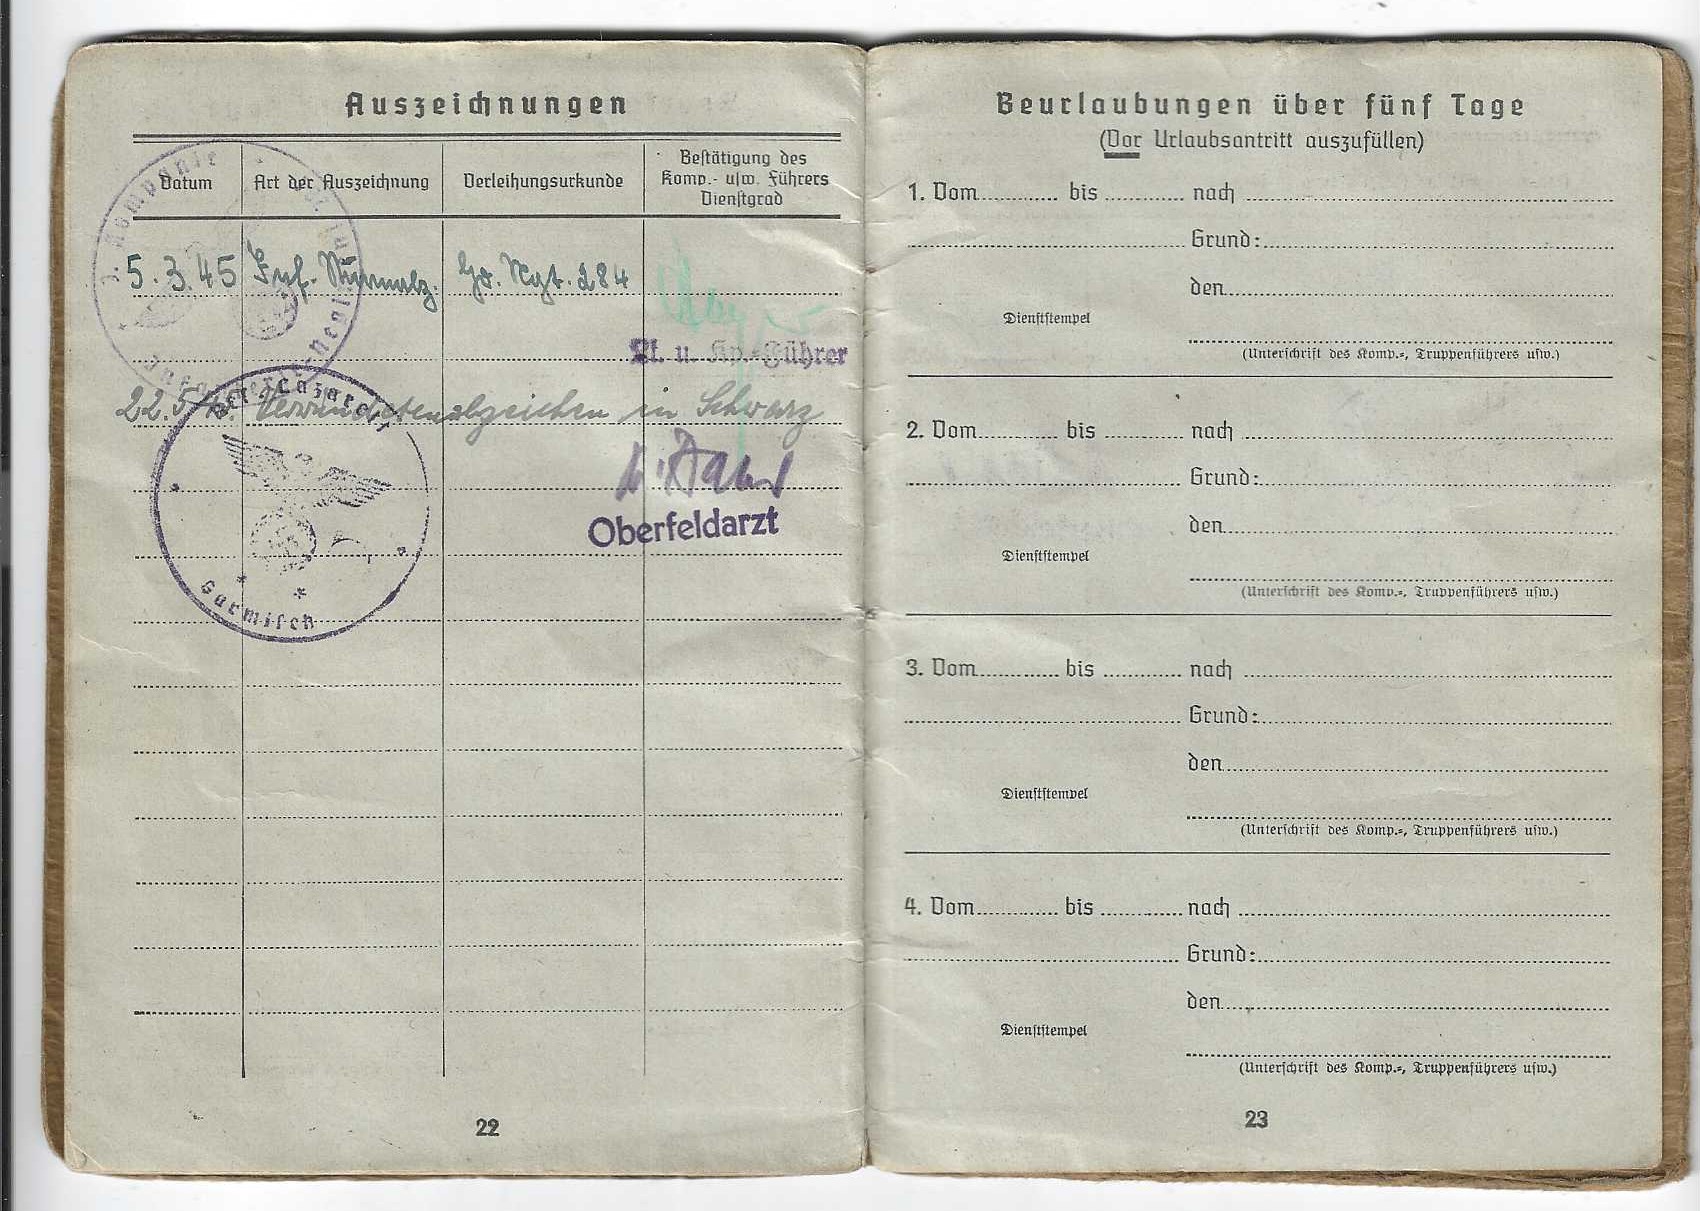 Auszeichnungen
Datum
Art der Auszeichnung
Verleihungsurkunde
Bestätigung des
Komp.- usw. Führers
Dienstgrad
5.3.45 Inf. Sturmabz. Gr. Rgt. 284
Lt. u. Kp.-Führer
22.5 Verwundetenabzeichen in Schwarz
Oberfeldarzt
Kompanie
Res.-Lazarett
Garmisch
22
Beurlaubungen über fünf Tage
(Vor Urlaubsantritt auszufüllen)
1. Vom bis nach
Grund:
den
Dienststempel
(Unterschrift des Komp.-, Truppenführers usw.)
2. Vom bis nach
Grund:
den
Dienststempel
(Unterschrift des Komp.-, Truppenführers usw.)
3. Vom bis nach
Grund:
den
Dienststempel
(Unterschrift des Komp.-, Truppenführers usw.)
4. Vom bis nach
Grund:
den
Dienststempel
(Unterschrift des Komp.-, Truppenführers usw.)
23